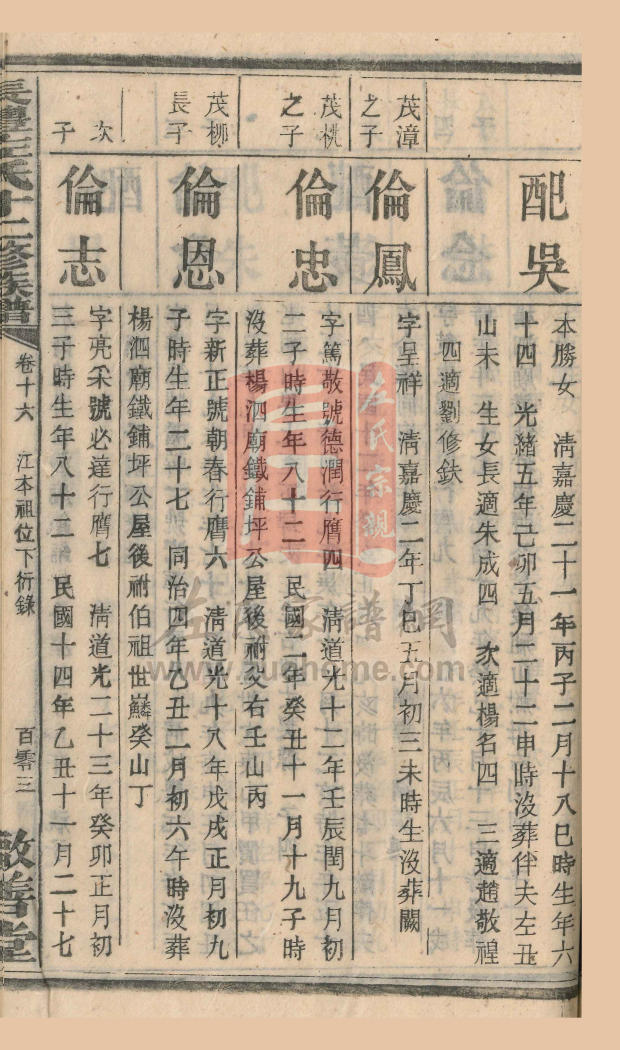 配吳
本勝女 淸嘉慶二十一年丙子二月十八巳時生年六
十四 光緒五年己卯五月二十二申時沒葬伴夫左丑
山未 生女長適朱成四 次適楊名四 三適趙敬禋
四適劉修鈇
茂漳
之子
倫鳳
字呈祥 淸嘉慶二年丁巳五月初三未時生沒葬闕
茂桃
之子
倫忠
字篤敬號德潤行膺四 淸道光十二年壬辰閏九月初
二子時生年八十二 民國二年癸丑十一月十九子時
沒葬楊泗廟鐵鋪坪公屋後祔父右壬山丙
茂柳
長子
倫恩
字新正號朝春行膺六 淸道光十八年戊戌正月初九
子時生年二十七 同治四年乙丑二月初六午時沒葬
楊泗廟鐵鋪坪公屋後祔伯祖世麟癸山丁
次
子
倫志
字亮采號必達行膺七 淸道光二十三年癸卯正月初
三子時生年八十三 民國十四年乙丑十一月二十七
氏十二修族譜
卷十六 江本祖位下衍錄
百零三
敬善堂
左氏宗親
左氏家譜網